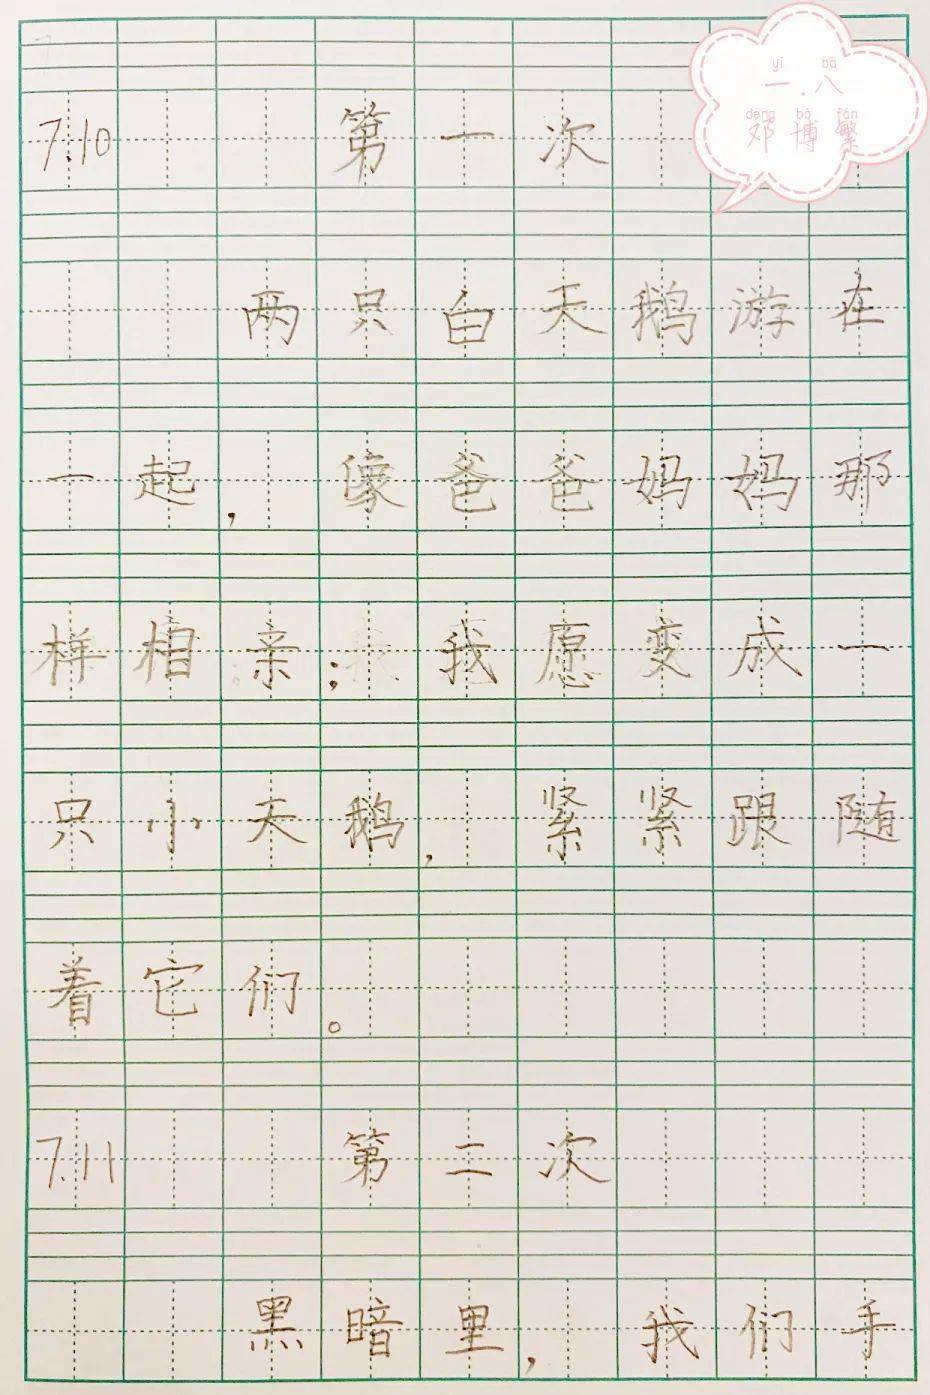 yī bā
一.八
dèng bó fán
邓博繁
7.10 第一次
两只白天鹅游在
一起,像爸爸妈妈那
样相亲;我愿变成一
只小天鹅,紧紧跟随
着它们。
7.11 第二次
黑暗里,我们手